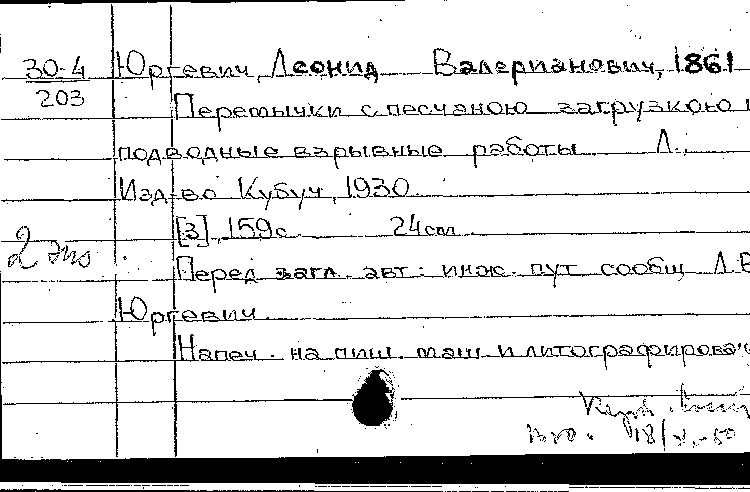 30-4 Юргевич, Леонид Валерианович, 1861
203
Перемычки с песчаною загрузкою и
подводные взрывные работы Л.,
Изд-во Кубуч, 1930.
[3], 159с. 24см.
2 экз
Перед загл. авт.: инж. пут. сообщ. Л.В.
Юргевич.
Напеч. на пиш. маш. и литографирова
18/